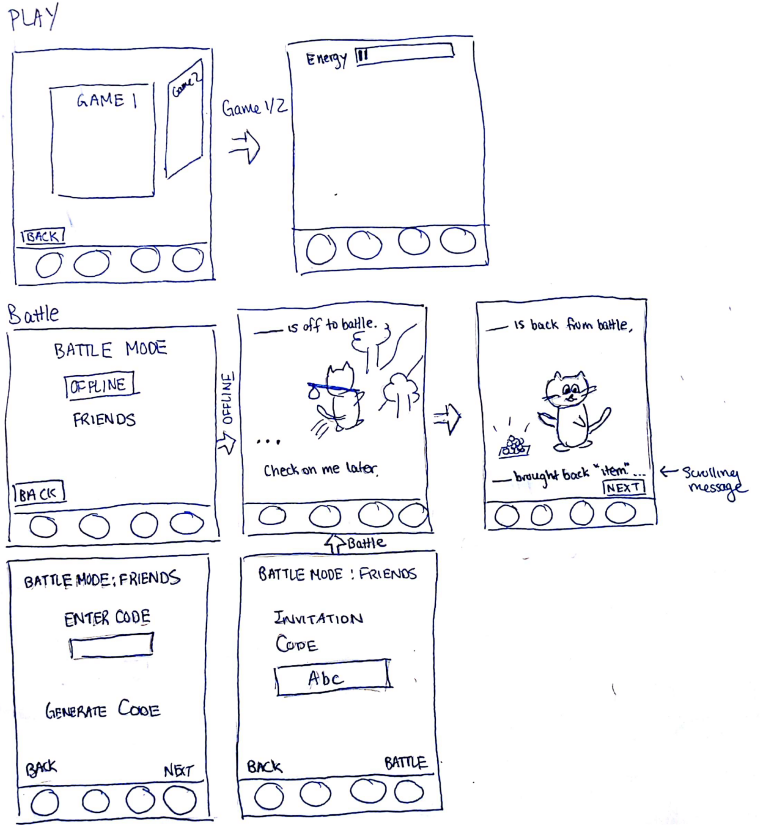 PLAY
GAME 1
Game 2
BACK
Game 1/2
Energy
Battle
BATTLE MODE
OFFLINE
FRIENDS
BACK
OFFLINE
___ is off to battle.
...
Check on me later.
___ is back from battle,
___ brought back "item"...
NEXT
Scrolling
message
Battle
BATTLE MODE: FRIENDS
ENTER CODE
GENERATE CODE
BACK
NEXT
BATTLE MODE : FRIENDS
INVITATION
CODE
Abc
BACK
BATTLE